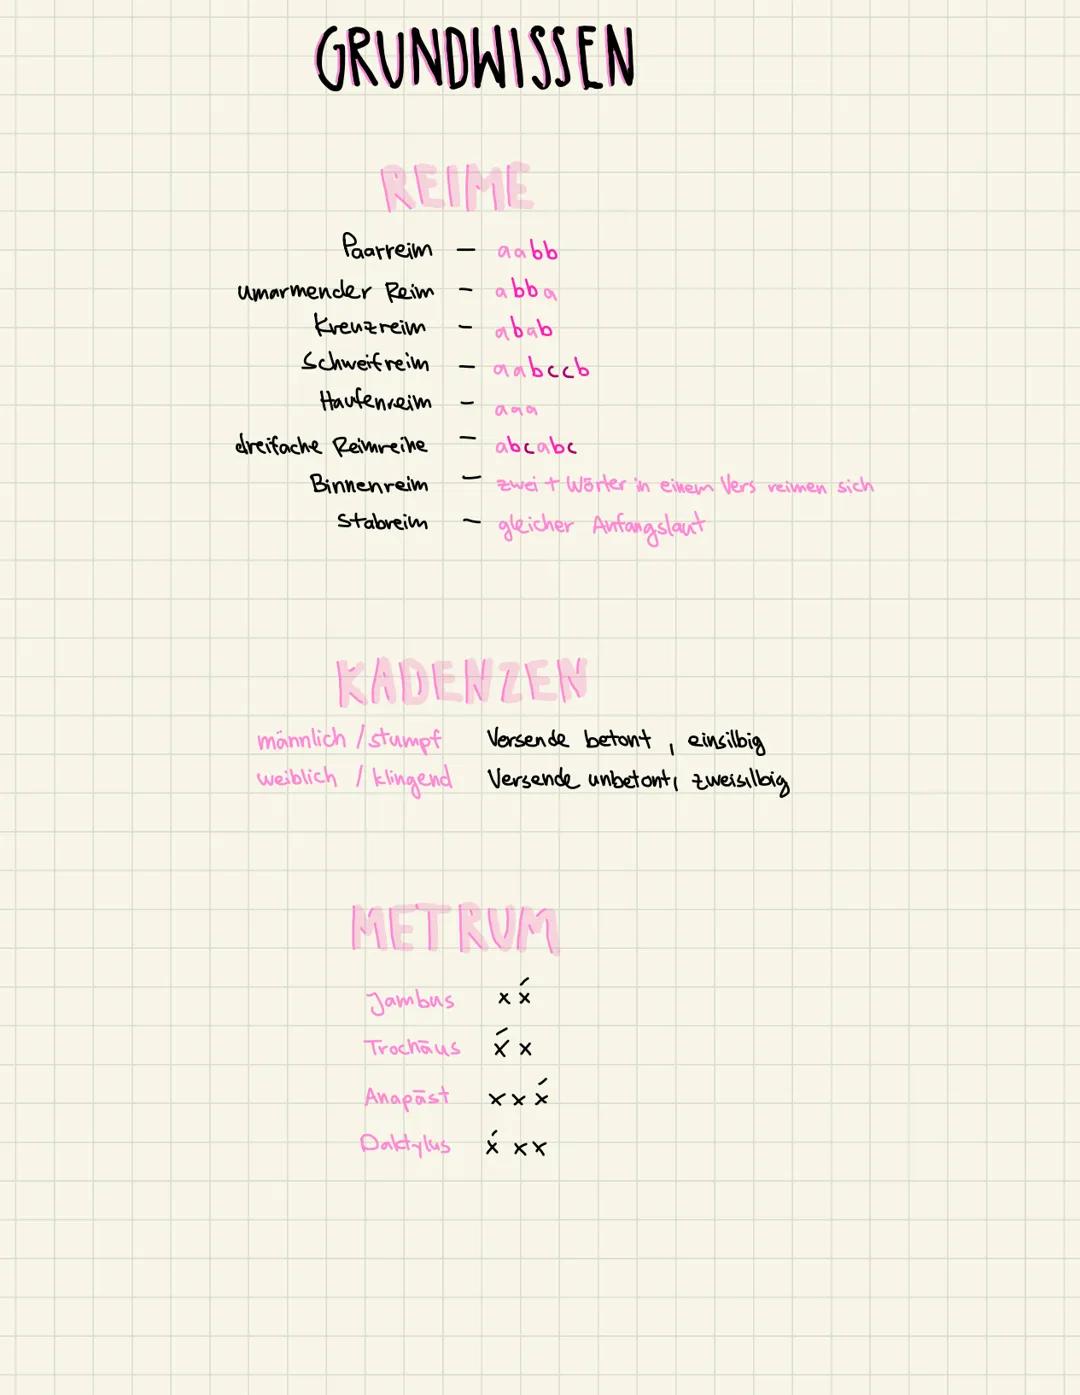 GRUNDWISSEN
REIME
Paarreim – aabb
umarmender Reim – abba
Kreuzreim – abab
Schweifreim – aabccb
Haufenreim – aaa
dreifache Reimreihe – abcabc
Binnenreim – zwei + Wörter in einem Vers reimen sich
Stabreim – gleicher Anfangslaut
KADENZEN
männlich / stumpf Versende betont, einsilbig
weiblich / klingend Versende unbetont, zweisilbig
METRUM
Jambus x x́
Trochäus x́ x
Anapäst x x x́
Daktylus x́ x x